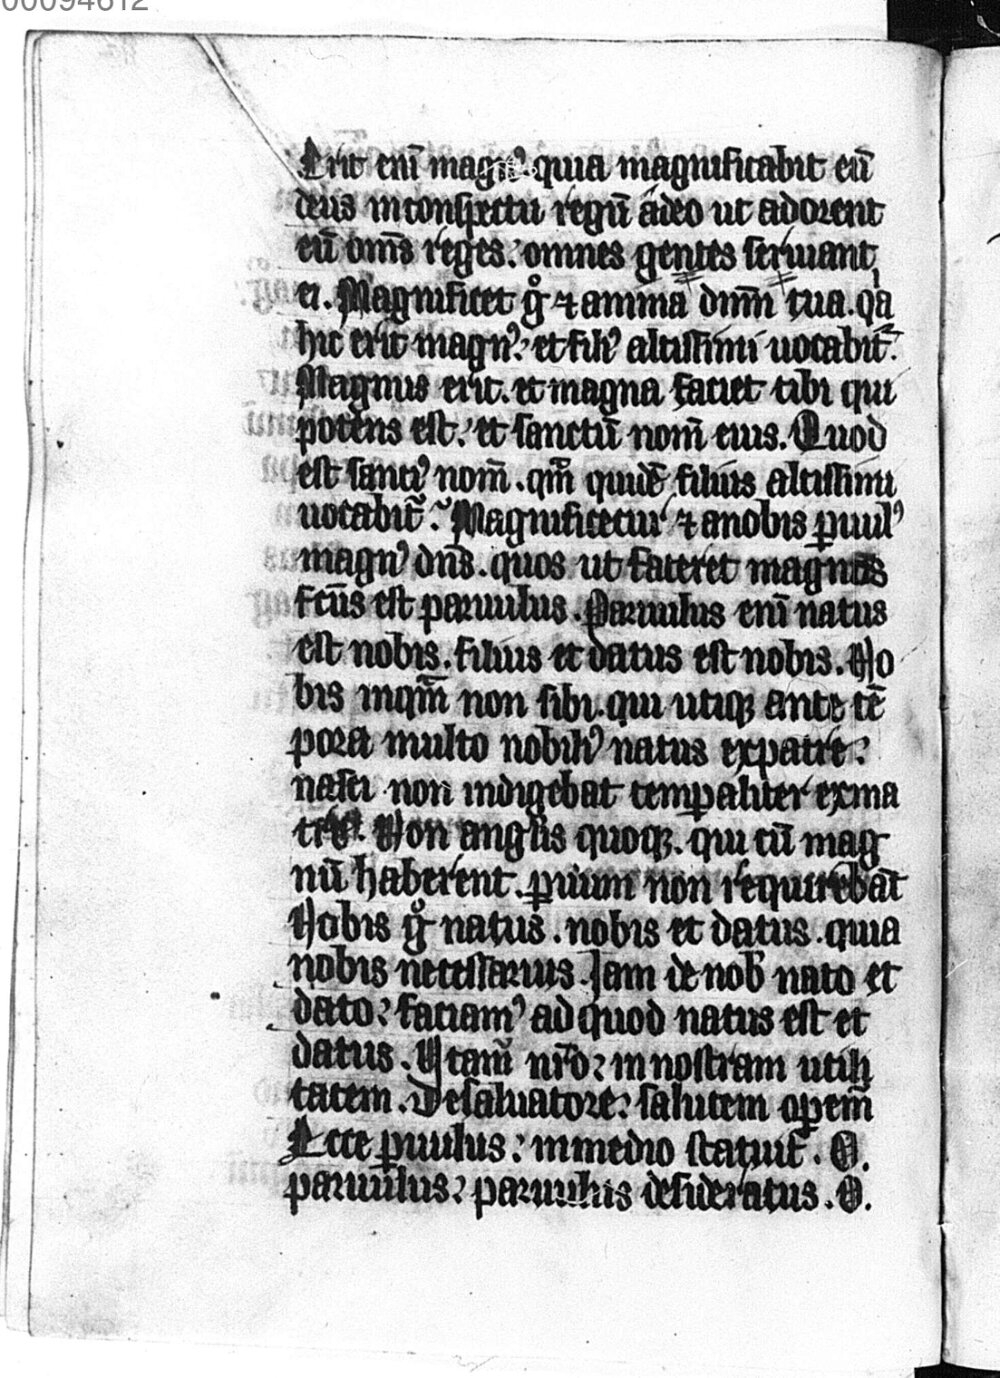 00094612
Erit eni͞ magnꝰ quia magnificabit eu͞
deus in conspectu regu͞ adeo ut adorent
eu͞ om͞s reges. omnes gentes seruiant
ei. Magnificet gͦ ⁊ anima dn͞m tua. qͣa
hic erit magnꝰ: et filiꝰ altissimi uocabit᷑.
Magnus erit. et magna faciet tibi qui
potens est. et sanctu͞ nom͞ eius. Quod
est sanctꝰ nom͞. qm͞ quide͞ filius altissimi
uocabit᷑. Magnificetur ⁊ a nobis ꝑuulꝰ
magnꝰ dn͞s. quos ut faceret magnos
fc͞us est paruulus. Paruulus eni͞ natus
est nobis. filius et datus est nobis. No
bis inqua͞m non sibi. qui utiqꝫ ante te͞
pora multo nobiliꝰ natus ex patre:
nasci non indigebat temꝑaliter ex ma
tre. Non angl͞is quoqꝫ. qui cu͞ mag
nu͞ haberent. ꝑuum non requireba͞t
Nobis gͦ natus. nobis et datus. quia
nobis necessarius. Jam de nob͞ nato et
dato: faciamꝰ ad quod natus est et
datus. Utam᷑ nr͞o: in nostram utili
tatem. De saluatore: salutem oꝑem᷑
Ecce ꝑuulus: in medio statuit᷑. O.
paruulus: paruulis desideratus. O.